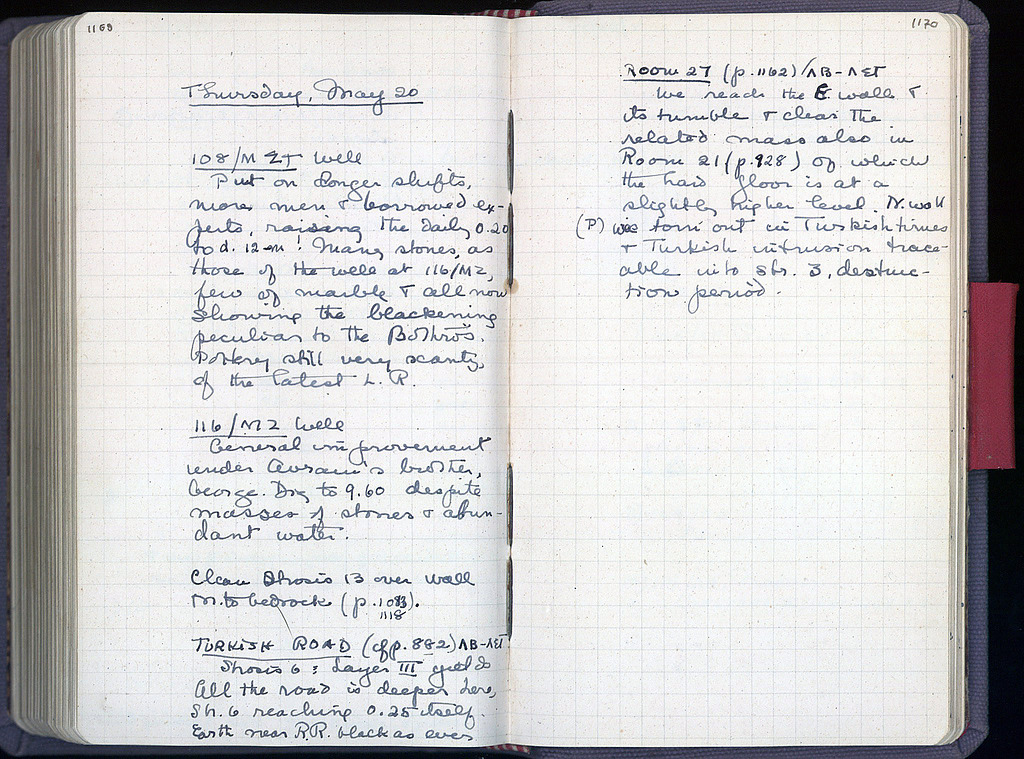 1169
Thursday, May 20
108/M ΣΤ Well
Put on longer shifts,
more men & borrowed ex-
perts, raising the daily 0.20
to d. 12 m! Many stones, as
those of the well at 116/MZ,
few of marble & all now
showing the blackening
peculiar to the Bothros.
Pottery still very scanty,
of the latest L. R.
116/MZ Well
General improvement
under Avram's brother,
George. Dig to 9.60 despite
masses of stones & abun-
dant water.
Clean Strosis 13 over wall
to bedrock (p. 1083).
1118
TURKISH ROAD (cf p. 882) ΛΒ-ΛΣΤ
Strosis 6: Layer III yields
All the road is deeper here,
Str. 6 reaching 0.25 itself.
Earth near R.R. black as ever
1170
Room 27 (p. 1162) ΛΒ-ΛΣΤ
We reach the E wall &
its tumble & clear the
related mass also in
Room 21 (p. 928) of which
the hard floor is at a
slightly higher level. N. wall
(P) was torn out in Turkish times
& Turkish intrusion trace-
able into Str. 3, destruc-
tion period.